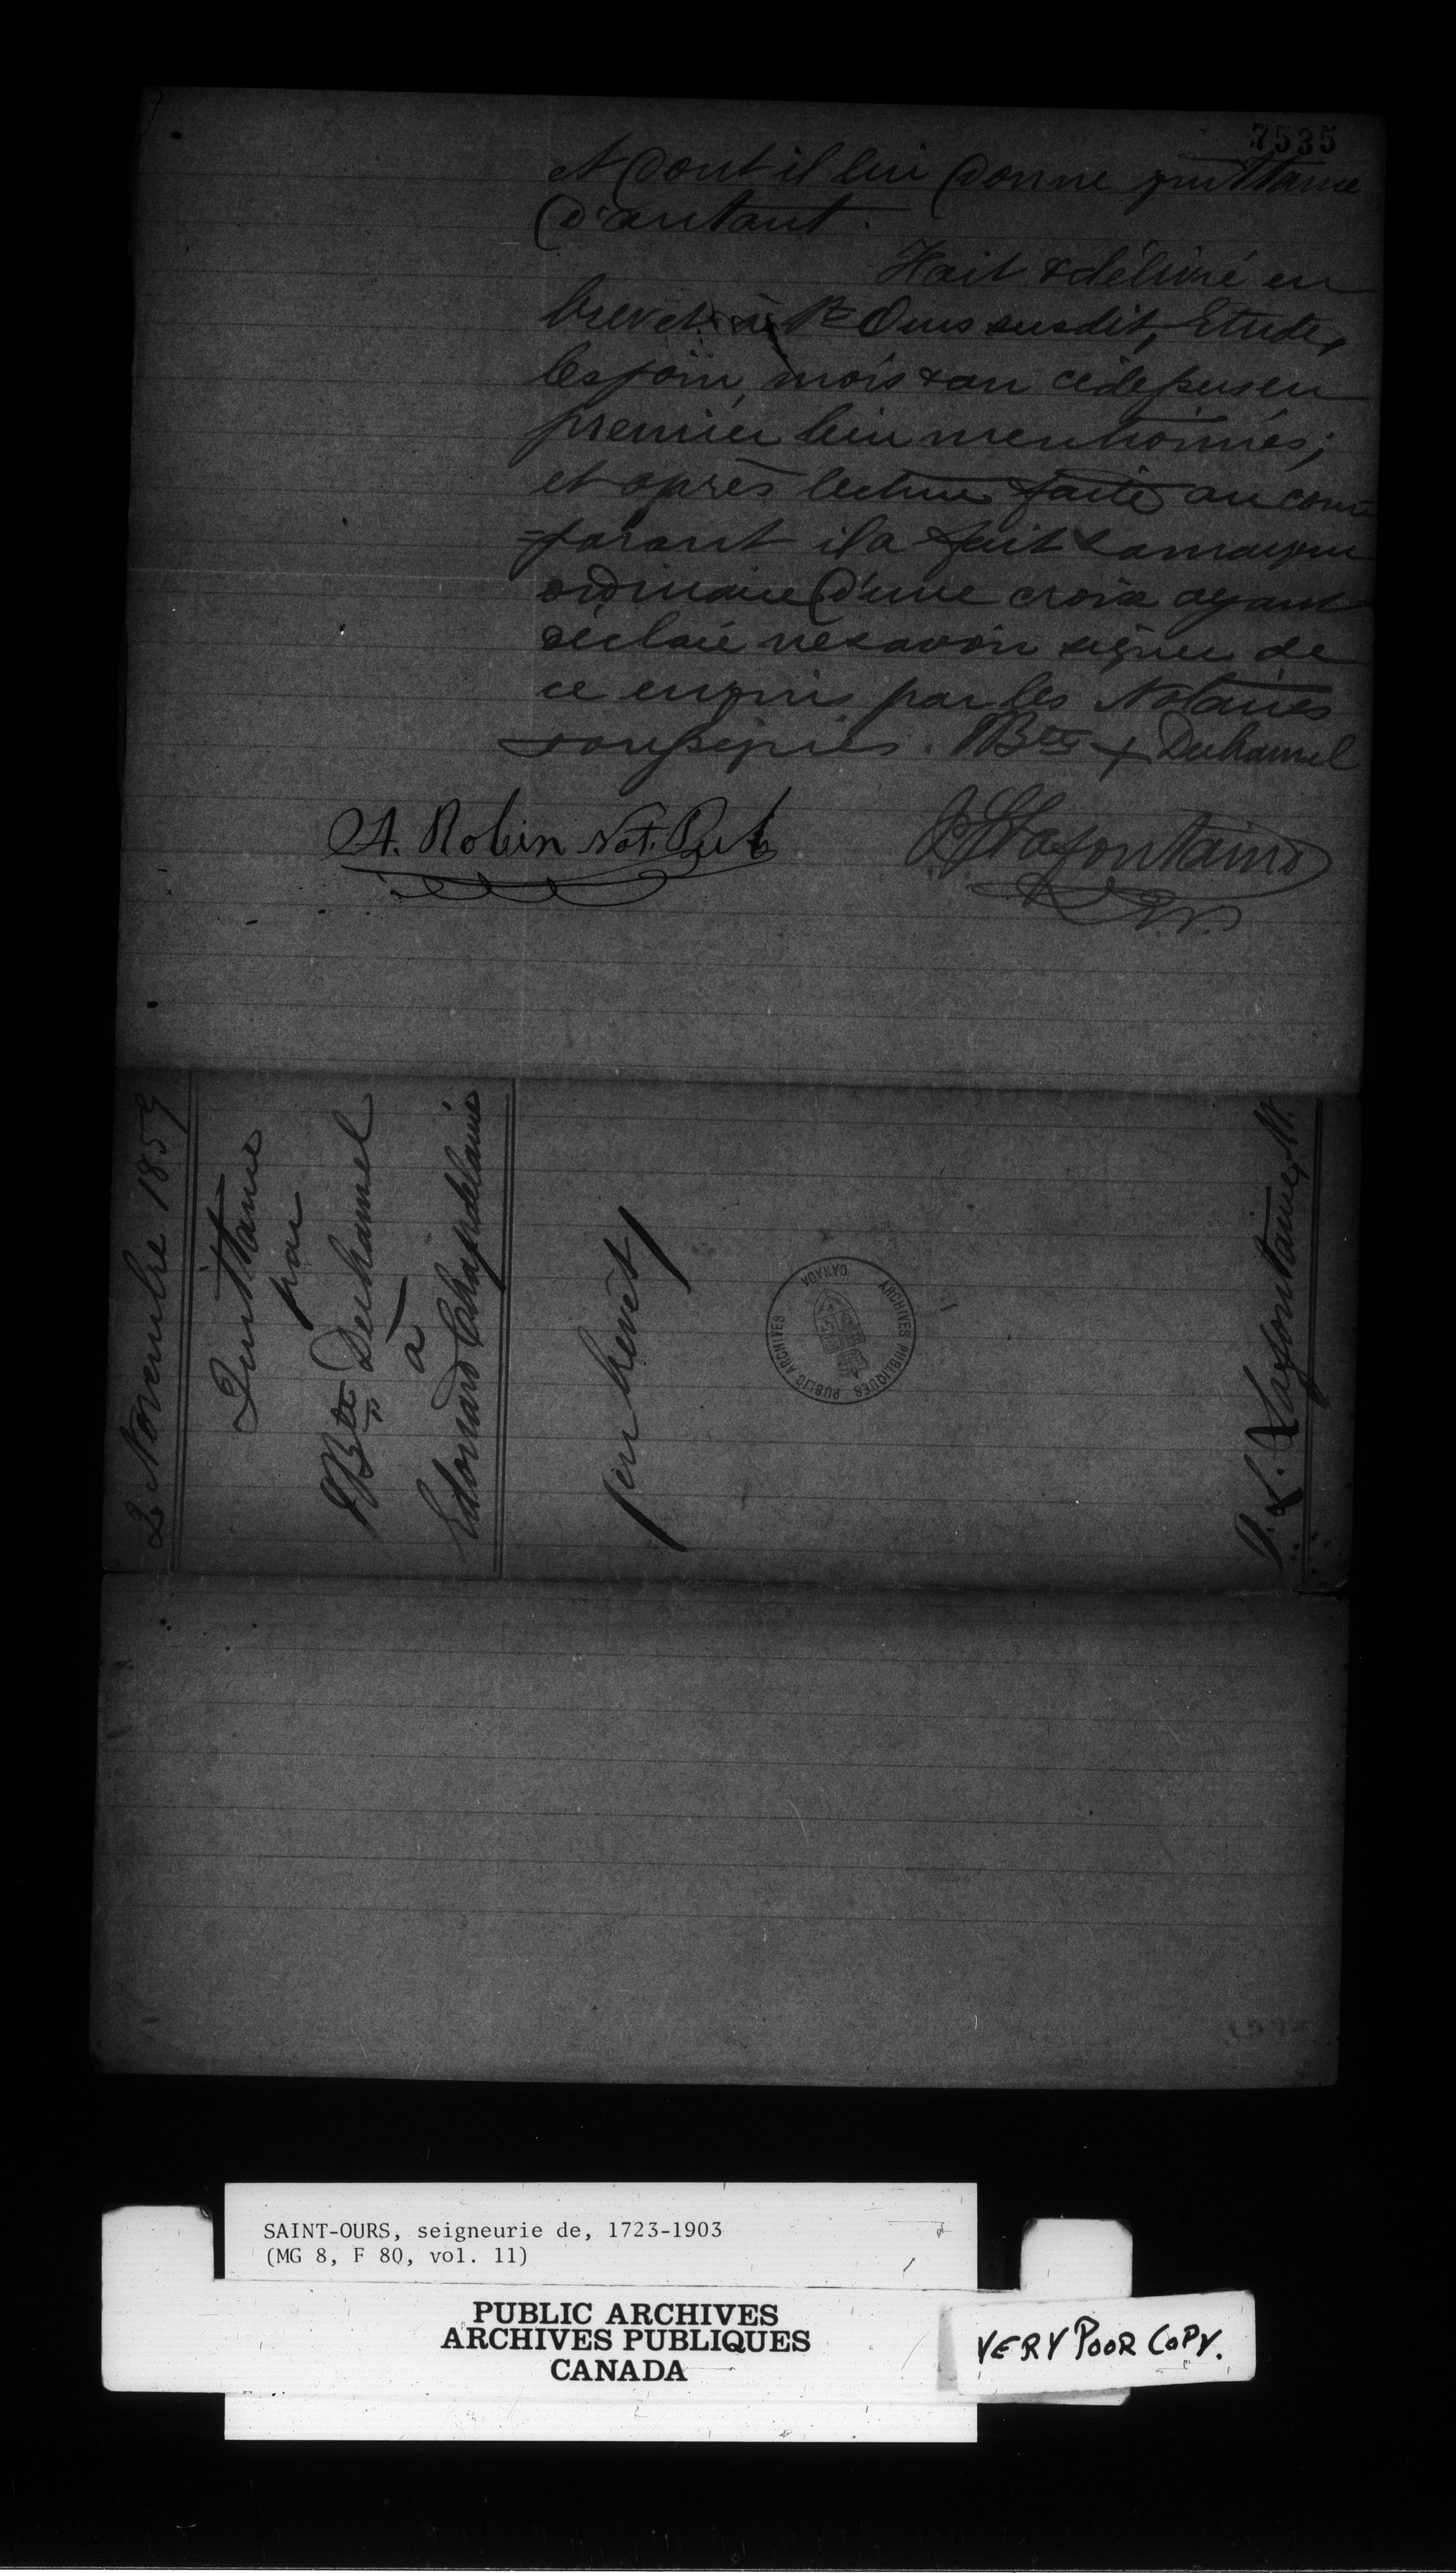 7535
et dont il lui donne quittance
d'autant.
Fait & délivré en
brevet à St Ours susdit, Etude,
les jour, mois & an cidessus en
premier lieu mentionnés;
et après lecture faite au com
=parant il a fait sa marque
ordinaire d'une croix ayant
déclaré ne savoir signer de
ce enquis par les Notaires
soussignés. JBte + Duhamel
A. Robin Not. Pub
Lafontaine
N.P.
2 Novembre 1859
Quittance
par
JBte Duhamel
à
Edouard Chapdelaine
en brevet
P. L. Lafontaine, N.
PUBLIC ARCHIVES
ARCHIVES PUBLIQUES
CANADA
SAINT-OURS, seigneurie de, 1723-1903
(MG 8, F 80, vol. 11)
PUBLIC ARCHIVES
ARCHIVES PUBLIQUES
CANADA
VERY POOR COPY.